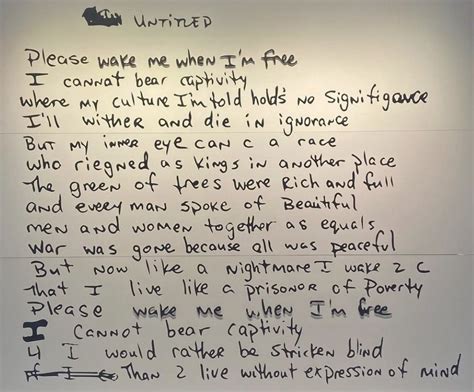 UNTITLED
Please wake me when I'm free
I cannot bear captivity
where my culture I'm told holds no signifigance
I'll wither and die in ignorance
But my inner eye can c a race
who riegned as kings in another place
The green of trees were rich and full
and every man spoke of Beautiful
men and women together as equals
War was gone because all was peaceful
But now like a nightmare I wake 2 c
That I live like a prisonor of Poverty
Please wake me when I'm free
I cannot bear captivity
4 I would rather be stricken blind
Than 2 live without expression of mind